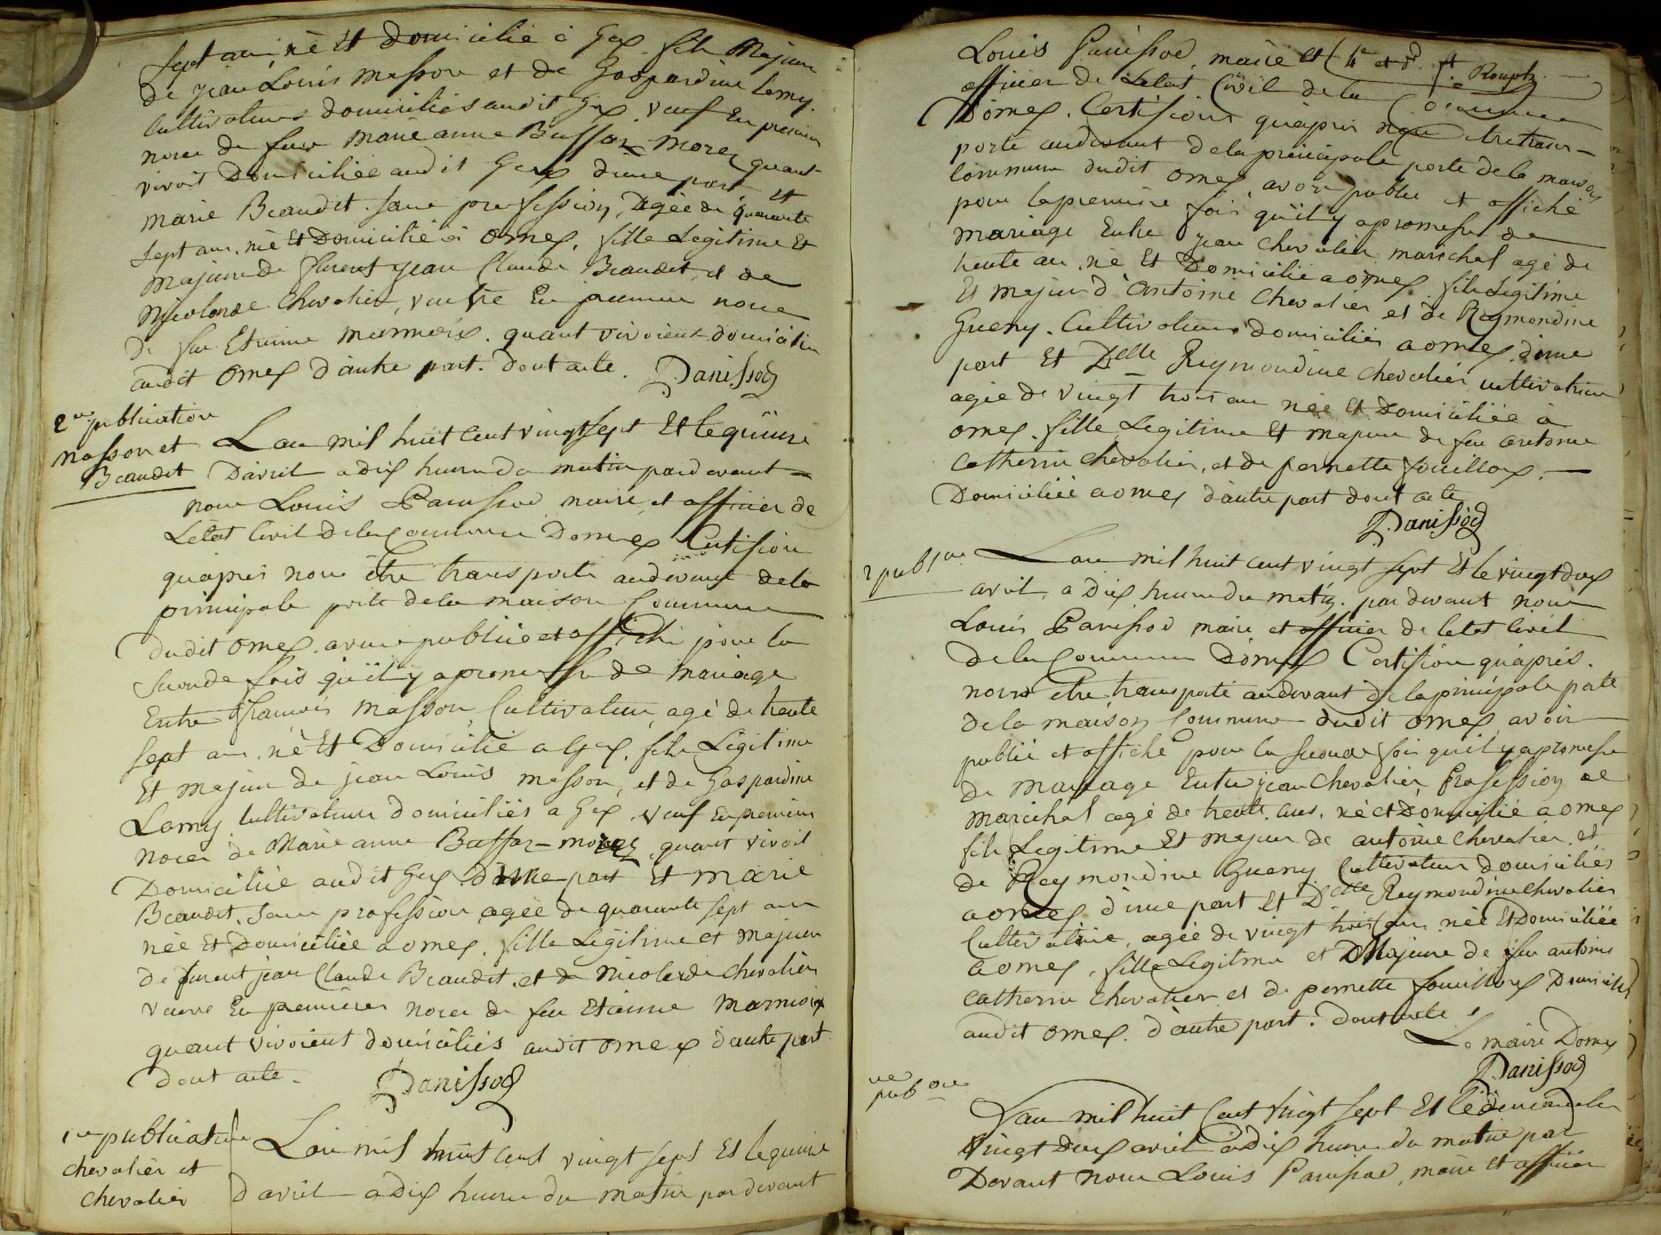 sept ans, né Et domicilié à Gex. fils Majeur
de jean Louis Masson et de Gaspardine Lamy.
Cultivateurs domiciliés audit Gex veuf En premier
noces de feue Marie anne Buffaz-Morez quant
vivoit Domiciliée audit Gex d'une part et
Marie Beaudet. sans profession, agée de quarante
sept ans. née Et Domiciliée à Ornex. fille Legitime Et
majeure de furent jean Claude Beaudet et de
Nicolarde Chevalier, veuve En premier noces
de feu Etienne Marmoux. quant vivoient domiciliés
audit Ornex d'autre part. dont acte. Panissod
2me publication
Masson et
Beaudet
Lan mil huit Cent vingt sept Et le quinze
D'avril a dix heures du matin pardevant
nous Louis Panissod maire et officier de
L'état Civil de la Commune Dornex Certifions
qu'après nous être transporté audevant de la
principale porte de la maison Commune
dudit Ornex. avons publié et affiché pour la
seconde fois qu'il y a promesse de mariage
Entre françois Masson, Cultivateur, agé de trente
sept ans. né Et Domicilié a Gex. fils Légitime
Et majeur de jean Louis Masson, et de Gaspardine
Lamy Cultivateurs domiciliés a Gex. veuf En premiers
noces de Marie anne Buffaz-morez quant vivoit
Domiciliée audit Gex. D'une part Et marie
Beaudet. sans profession, agée de quarante sept ans
née Et Domiciliée a ornex. fille Légitime et Majeure
de furent jean Claude Beaudet. et de Nicolarde Chevalier
veuve En premières noces de feu Etienne Marmoux
quant vivoient domiciliés audit ornex d'autre part
dont acte. Panissod
1re publication
chevalier et
chevalier
L'an mil huit Cent vingt sept Et le quinze
d'avril a Dix heures du matin pardevant
Louis Panissod, maire et
officier de L'etat Civil de la Commune
Dornex. Certifions qu'après nous être trans-
porté audevant de la principale porte de la maison
Commune dudit ornex, avoir publié et affiché
pour la première fois qu'il y a promesse de
mariage Entre jean Chevalier, marechal agé de
trente ans. né Et Domicilié a ornex. fils Legitime
Et majeur d'antoine Chevalier et de Reymondine
Gueny. Cultivateurs Domiciliés a ornex. d'une
part Et Delle Reymondine Chevalier cultivatrice
agée de vingt trois ans née Et Domiciliée à
ornex. fille Legitime Et majeure de feu antoine
Catherin Chevalier, et de pernette fouilloux.
Domiciliée a ornex d'autre part dont acte
Panissod
2 publion
Lan mil huit cent vingt sept Et le vingt deux
avril, a dix heures du matin. pardevant nous
Louis Panissod maire et officier de letat Civil
De la Commune Dornex Certifions qu'après.
nous être transporté audevant de la principale porte
de la maison Commune dudit ornex, avoir
publié et affiché pour la seconde fois qu'il y a promesse
de mariage Entre jean Chevalier, Profession de
marechal agé de trente. ans. né et Domicilié a ornex
fils Legitime Et majeur de antoine Chevalier, et
de Reymondine Gueny Cultivateurs domiciliés
a ornex d'une part Et Delle Reymondine Chevalier
Cultivatrice, agée de vingt trois ans. née Et Domiciliée
a ornex, fille Legitime et Majeure de feu antoine
Catherin Chevalier, et de pernette fouilloux Domiciliés
audit ornex. d'autre part. Dont acte.
Le maire Dornex
Panissod
pubon
L'an mil huit Cent vingt sept Et le dimanche
vingt deux avril à dix heures du matin par
Devant nous Louis Panissod, maire Et officier